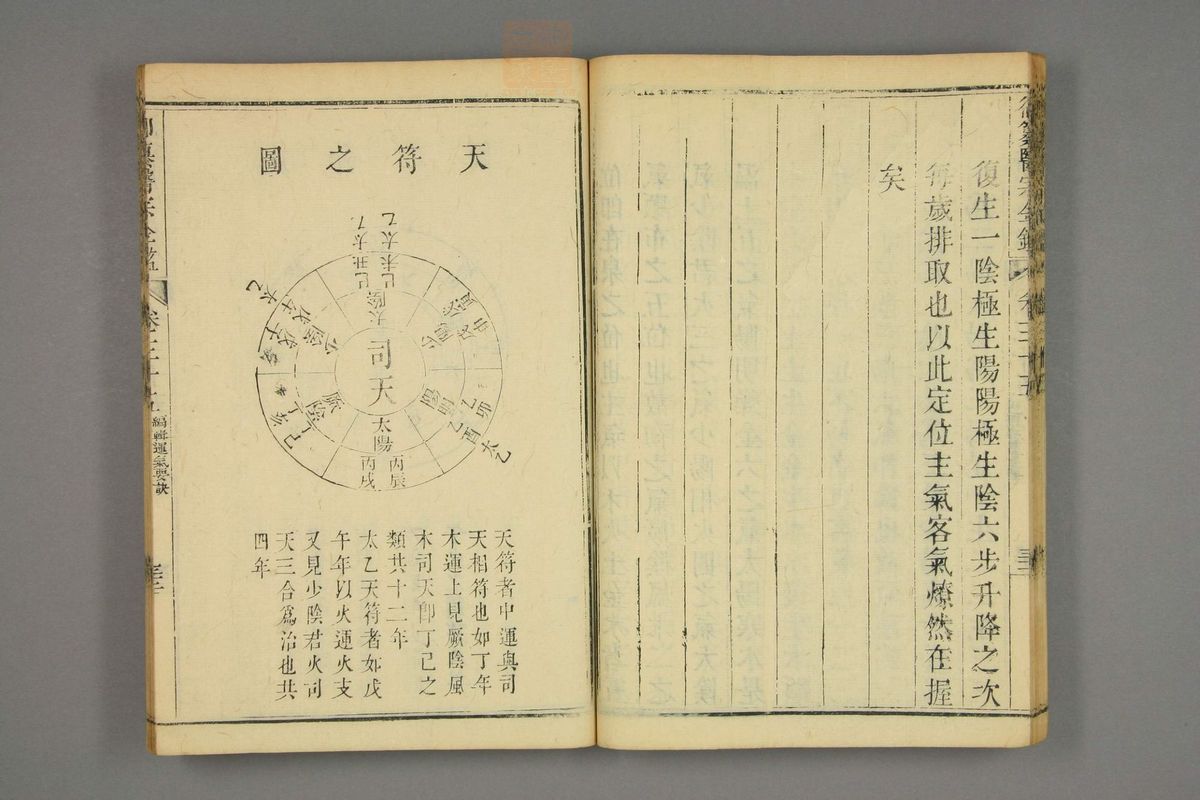 復生一陰極生陽陽極生陰六步升降之次
每歲排取也以此定位主氣客氣燎然在握
矣
天符之圖
司天
太陽
丙辰
丙戌
乙卯
乙酉太乙
己未太乙
己丑太乙
太陰
少陰
戊子
戊午太乙
天符者中運與司
天相符也如丁年
木運上見厥陰風
木司天卽丁巳之
類共十二年
太乙天符者如戊
午年以火運火支
又見少陰君火司
天三合爲治也共
四年
編輯運氣要訣